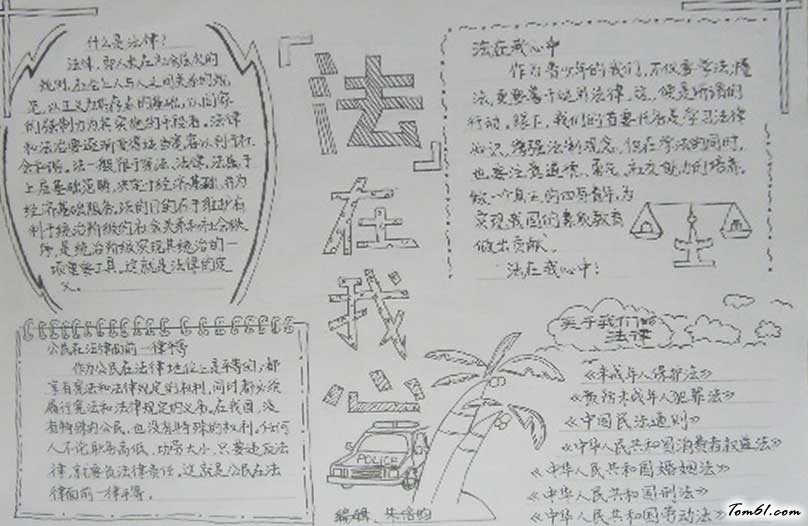 什么是法律?
法律,即人类在社会层次的
规则,社会上人与人之间关系的规
范,以正义为其存在的基础,以国家
的强制力为其实施的手段者。法律
和法治要逐渐变得适当宽容以利于社
会和谐。法一般限于宪法、法律。法属于
上层基础范畴,决定于经济基础,并为
经济基础服务。法的目的在于维护有
利于统治阶级的社会关系和社会秩
序,是统治阶级实现其统治的一
项重要工具。这就是法律的定
义。
公民在法律面前一律平等
作为公民在法律地位上是平等的,都
享有宪法和法律规定的权利,同时都必须
履行宪法和法律规定的义务。在我国,没
有特殊的公民,也没有特殊的权利,任何
人不论职务高低、功劳大小,只要违反法
律,就要负法律责任。这就是公民在法
律面前一律平等。
法在我心
POLICE
编辑:
法在我心中
作为青少年的我们,不仅要学法,懂
法,更要善于运用法律。这,便是所谓的
行动。眼下,我们的首要任务是学习法律
知识,增强法制观念。但在学法的同时,
也要注意道德、
能力的培养。
做一个真正的四有青年,为
实现我国的素质教育
做出贡献。
法在我心中!
关于我们的
法律
《未成年人保护法》
《预防未成年人犯罪法》
《中国民法通则》
《中华人民共和国消费者权益法》
《中华人民共和国婚姻法》
《中华人民共和国刑法》
《中华人民共和国劳动法》
Tom61.com